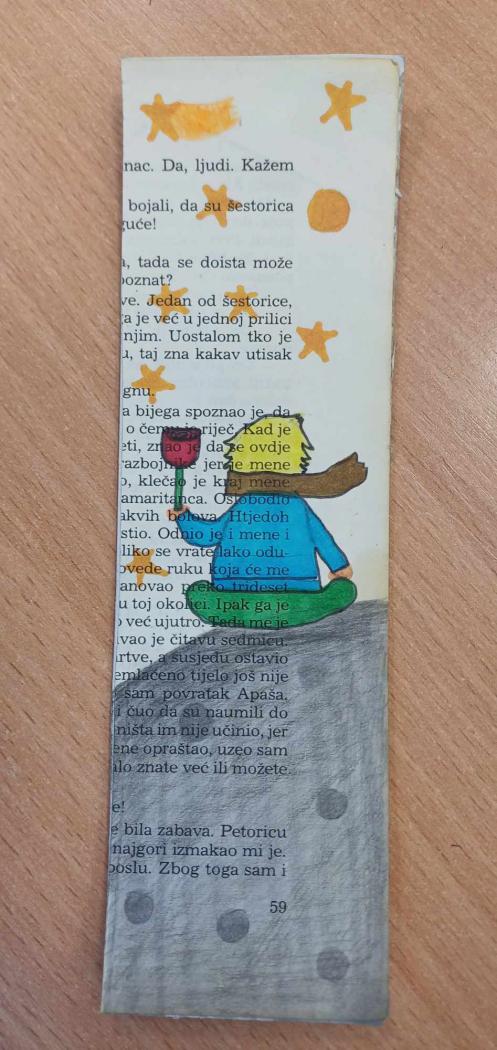 nac. Da, ljudi. Kažem
bojali, da su šestorica
guće!
a, tada se doista može
poznat?
ve. Jedan od šestorice,
ga je već u jednoj prilici
njim. Uostalom tko je
u, taj zna kakav utisak
gnu.
a bijega spoznao je, da
o čemu je riječ. Kad je
eti, znao je da se ovdje
razbojnike jer je mene
o, klečao je kraj mene
amaritanca. Oslobodio
akvih bolova. Htjedoh
stio. Odnio je i mene i
liko se vrate lako odu-
ovede ruku koja će me
anovao preko trideset
u toj okolici. Ipak ga je
već ujutro. Tada me je
vao je čitavu sedmicu.
artve, a susjedu ostavio
emlaćeno tijelo još nije
sam povratak Apaša.
i čuo da su naumili do
ništa im nije učinio, jer
ene opraštao, uzeo sam
alo znate već ili možete.
e!
e bila zabava. Petoricu
najgori izmakao mi je.
poslu. Zbog toga sam i
59